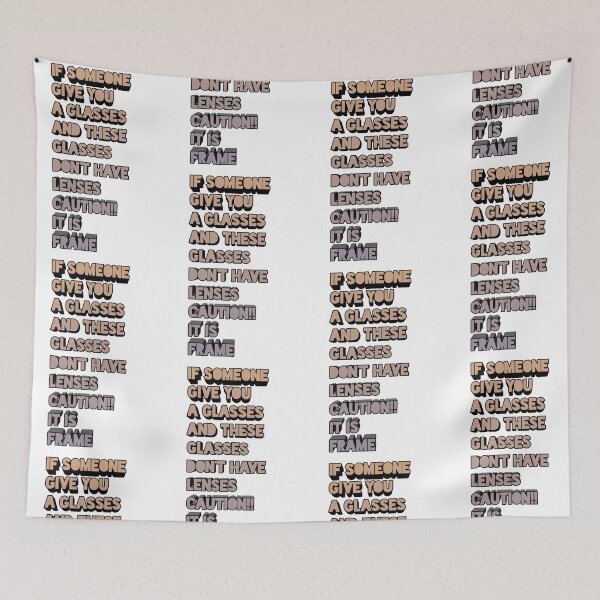 IF SOMEONE
GIVE YOU
A GLASSES
AND THESE
GLASSES
DON'T HAVE
LENSES
CAUTION!!
IT IS
FRAME
IF SOMEONE
GIVE YOU
A GLASSES
AND THESE
GLASSES
DON'T HAVE
LENSES
CAUTION!!
IT IS
FRAME
IF SOMEONE
GIVE YOU
A GLASSES
AND THESE
DON'T HAVE
LENSES
CAUTION!!
IT IS
FRAME
IF SOMEONE
GIVE YOU
A GLASSES
AND THESE
GLASSES
DON'T HAVE
LENSES
CAUTION!!
IT IS
FRAME
IF SOMEONE
GIVE YOU
A GLASSES
AND THESE
GLASSES
DON'T HAVE
LENSES
CAUTION!!
IT IS
IF SOMEONE
GIVE YOU
A GLASSES
AND THESE
GLASSES
DON'T HAVE
LENSES
CAUTION!!
IT IS
FRAME
IF SOMEONE
GIVE YOU
A GLASSES
AND THESE
GLASSES
DON'T HAVE
LENSES
CAUTION!!
IT IS
FRAME
IF SOMEONE
GIVE YOU
A GLASSES
AND THESE
DON'T HAVE
LENSES
CAUTION!!
IT IS
FRAME
IF SOMEONE
GIVE YOU
A GLASSES
AND THESE
GLASSES
DON'T HAVE
LENSES
CAUTION!!
IT IS
FRAME
IF SOMEONE
GIVE YOU
A GLASSES
AND THESE
GLASSES
DON'T HAVE
LENSES
CAUTION!!
IT IS